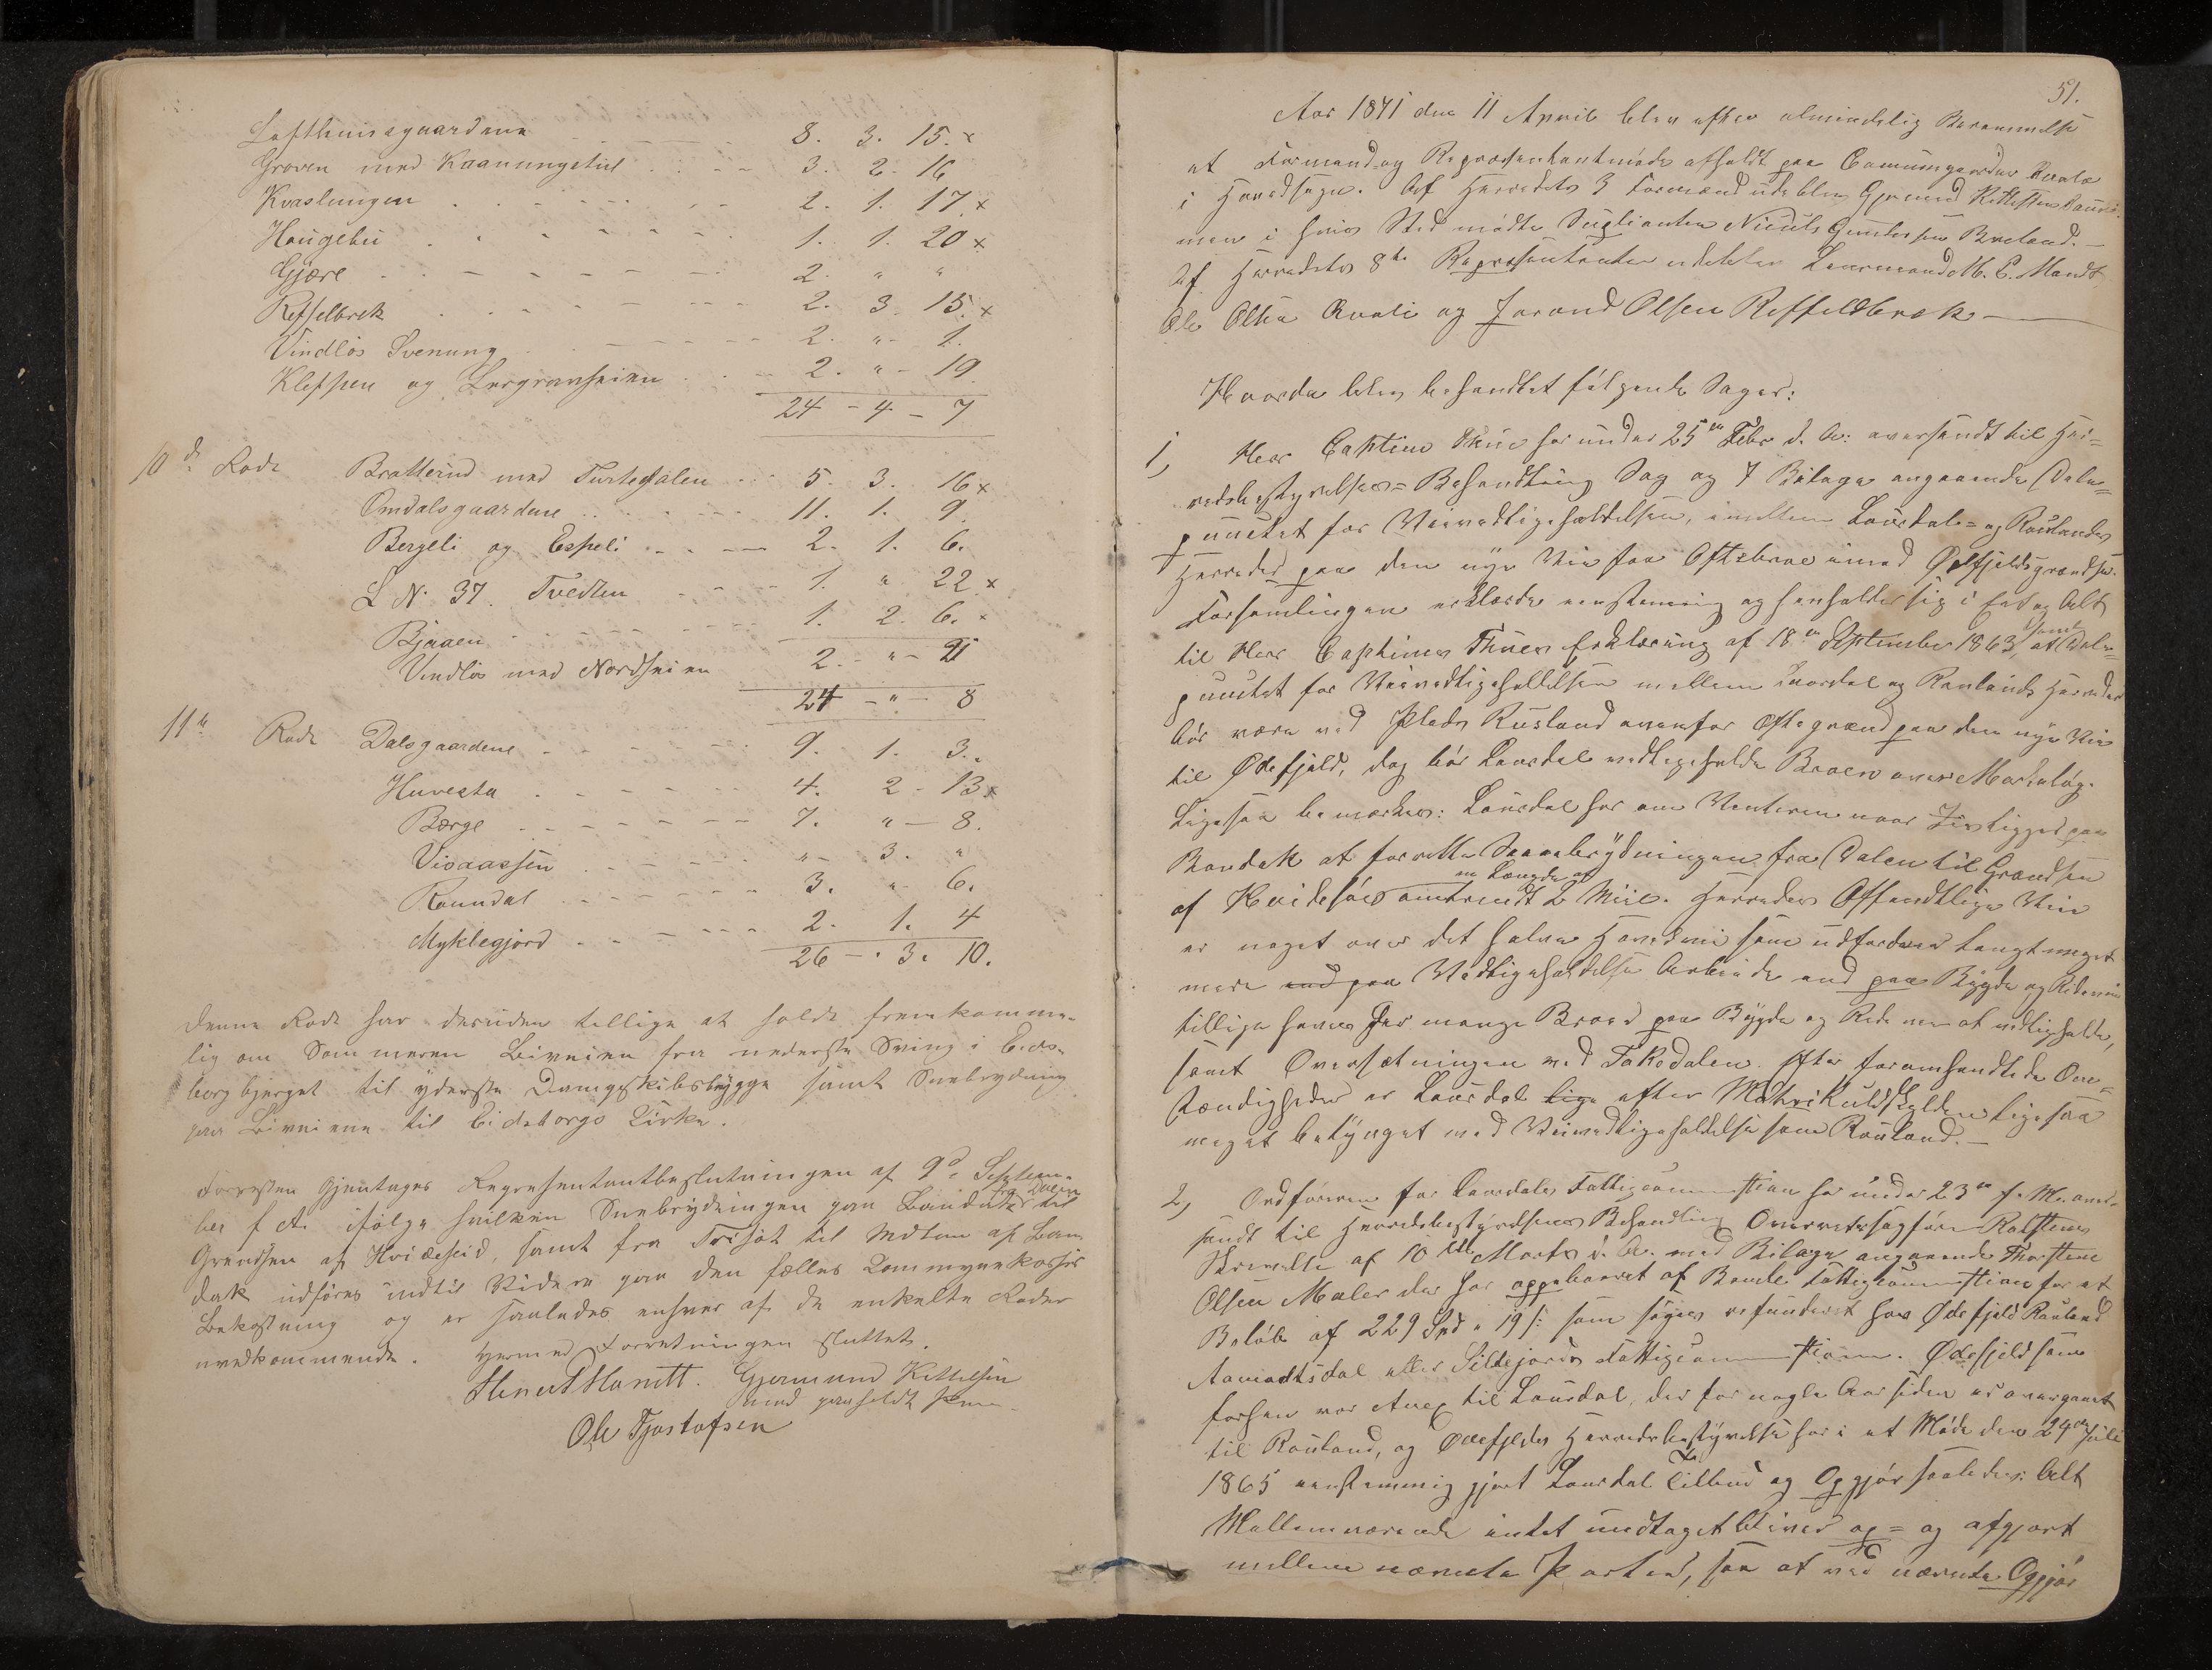 Lofthuusgaardene 8. 3. 15. x
Groven med Kaanungstul 3. 2. 16
Kvaslungen 2. 1. 17. x
Haugebu 1. 1. 20 x
Gjære 2. " "
Reffelbrek 2. 3. 15. x
Vindlös Svenung 2. " - 1.
Kleppen og 2. " - 19
24 - 4 - 7
10de Rode Bratterud med Turtedalen 5. 3. 16 x
Omdalsgaardene 11. 1. 9
Bergeli og Espeli 2. 1. 6.
L No 37. Tvedten 1. " 22 x
Bjaaen 1. 2. 6. x
Vindlös med Nordheien 2. - " - 21
24 - " - 8
11te Rode Dalsgaardene 9. 1. 3.
Huvesta 4. 2 - 13 x
Børge 7. " - 8.
Visaassen " - 3. "
Raundal 3. " 6.
Myklegjord 2. 1. 4
26 - . 3. 10.
Denne Rode har desuden tillige at holde fremkomme-
lig om Sommeren Biveien fra nederste Sving i Eids-
borgbjerget til yderste Dampskibsbrygge samt Sneebrydning
paa Biveiene til Eidsborgs Kirke.
Forresten gjentages Repræsentantbeslutningen af 9de Septem-
ber f. A. ifølge hvilken Sneebrydningen paa Bandak fra Dalen til
Grændsen af Hvideseid, samt fra Triset til Midten af Ban-
dak udføres indtil Videre paa den fælles Kommunekasses
Bekostning og er saaledes enhver af de enkelte Roder
uvedkommende. Hermed Forretningen sluttet.
Gjermund Kittelsen
med paaholdt Pen
Ole Tjostofsen
51.
Aar 1871 den 11 April blev efter almindelig Berammelse
et Formand og Repræsentantmøde afholdt paa Comunegaarden
i Hovedsogn. Af Herredets 3 Formænd udeblev Gjermund Kittelsen
men i hvis Sted mødte Suplianten Nieuls Gunlessen Breland. -
Af Herredets 8te Repræsentanter udebleve Lensmand M. E. Mandt
Ole Olsen Kvali og Jorand Olsen Reffeldbræk -
Hvorda blev behandlet følgende Sager:
1, Herr Captein Thue har under 25de Febr d. A. oversendt til Her-
redsbestyrelsens Behandling Sag og 7 Bilage angaaende Dele-
punctet for Veivedligeholdelsen, imellem Laurdals- og Raulands
Herreder paa den nye Vei fra Oftebroe imod Ødefjeldsgrændse.
Forsamlingen erklærede eenstemmig og henholder sig i Eet og Alt
til Herr Captein Thues Erklæring af 18de September 1863, samt at Dele-
punctet for Veivedligeholdelsen mellem Laurdal og Raulands Herreder
bør være ved Plads Rusland ovenfor Oftegrænd paa den nye Vei
til Ødefjeld, dog bør Laurdal vedligeholde Broen over
Ligesaa bemærkes: Laurdal har om Vinteren naar Iis ligger paa
Bandak at forrette Sneebrydningen fra Dalen til Grændsen
af Hvideseid en Længde af omtrendt 2 Miil. Herredets Offentlige Vei
er noget over det halve Hovedvei som udfordrer langt meget
mere end paa Vedligeholdelse Arbeide end paa Bygde og Rideveie
tillige haves her mange Broer paa Bygde og Rideveie at vedligeholde,
samt Oversætningen ved Tokedalen. Efter foromhandlede Om-
stændigheder er Laurdal lige efter Matrikulskylden ligesaa
meget betynget med Veivedligeholdelse som Rauland. -
2, Ordføreren for Laurdals Fattigcommission har under 23de f. M. over-
sendt til Herredsbestyrelsens Behandling Overretssagfører
Skrivelse af 10de Marts d. A. med Bilage angaaende Thorstein
Olsen Maler der har oppebaaret af Fattigcommission for et
Beløb af 229 Spd " 19 s: som søges refunderet hos Ødefjeld Rauland
Aamodtsdal eller Sillejords Fattigcommission. Ødefjeld som
forhen var Anex til Laurdal, der for nogle Aar siden er overgaaet
til Rauland, og Ødefjelds Herredsbestyrelse har i et Møde den 24de Juli
1865 eenstemmig gjort Laurdal Tilbud og Opgjør saaledes: Alt
Mellemværende intet undtaget bliver op- og afgjort
mellem nævnte Parter, saa at ved nævnte Opgjør